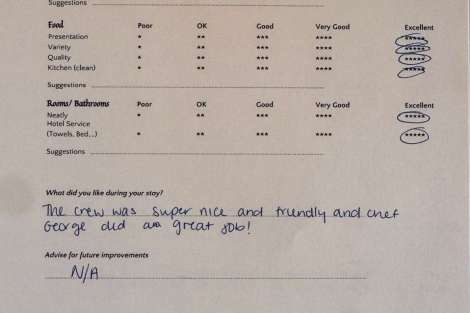 Suggestions
Food Poor OK Good Very Good Excellent
Presentation * ** *** **** *****
Variety * ** *** **** *****
Quality * ** *** **** *****
Kitchen (clean) * ** *** **** *****
Suggestions
Rooms/ Bathrooms Poor OK Good Very Good Excellent
Neatly * ** *** **** *****
Hotel Service
(Towels, Bed,..) * ** *** **** *****
Suggestions
What did you like during your stay?
The crew was super nice and friendly and chef
George did a great job!
Advise for future improvements
N/A